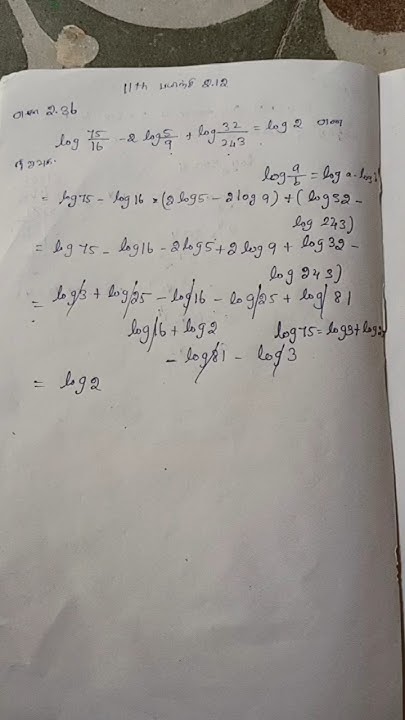 11th பயிற்சி 2.12
எ.கா 2.36
log 75/16 - 2 log 5/9 + log 32/243 = log 2 எனக்
log a/b = log a - log b
= log 75 - log 16 - (2 log 5 - 2 log 9) + (log 32 -
log 243)
= log 75 - log 16 - 2 log 5 + 2 log 9 + log 32 -
log 243)
= log 3 + log 25 - log 16 - log 25 + log 81
log 16 + log 2 log 75 = log 3 + log 25
- log 81 - log 3
= log 2